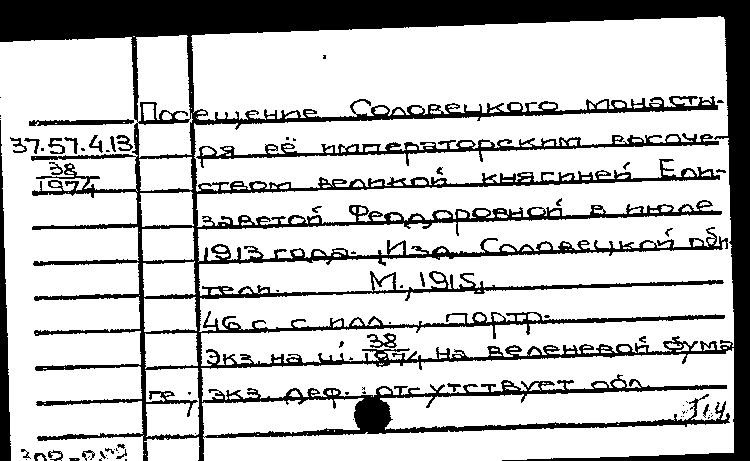 Посещение Соловецкого монасты-
37.57.4.13 ря её императорским высоче-
38/1974 ством великой княгиней Ели-
заветой Феодоровной в июле
1913 года. Изд. Соловецкой оби-
тели. М., 1915.
46 с. с илл., портр.
Экз. на ш. 38/1974 на веленевой бума
экз. деф.: отсутствует обл.